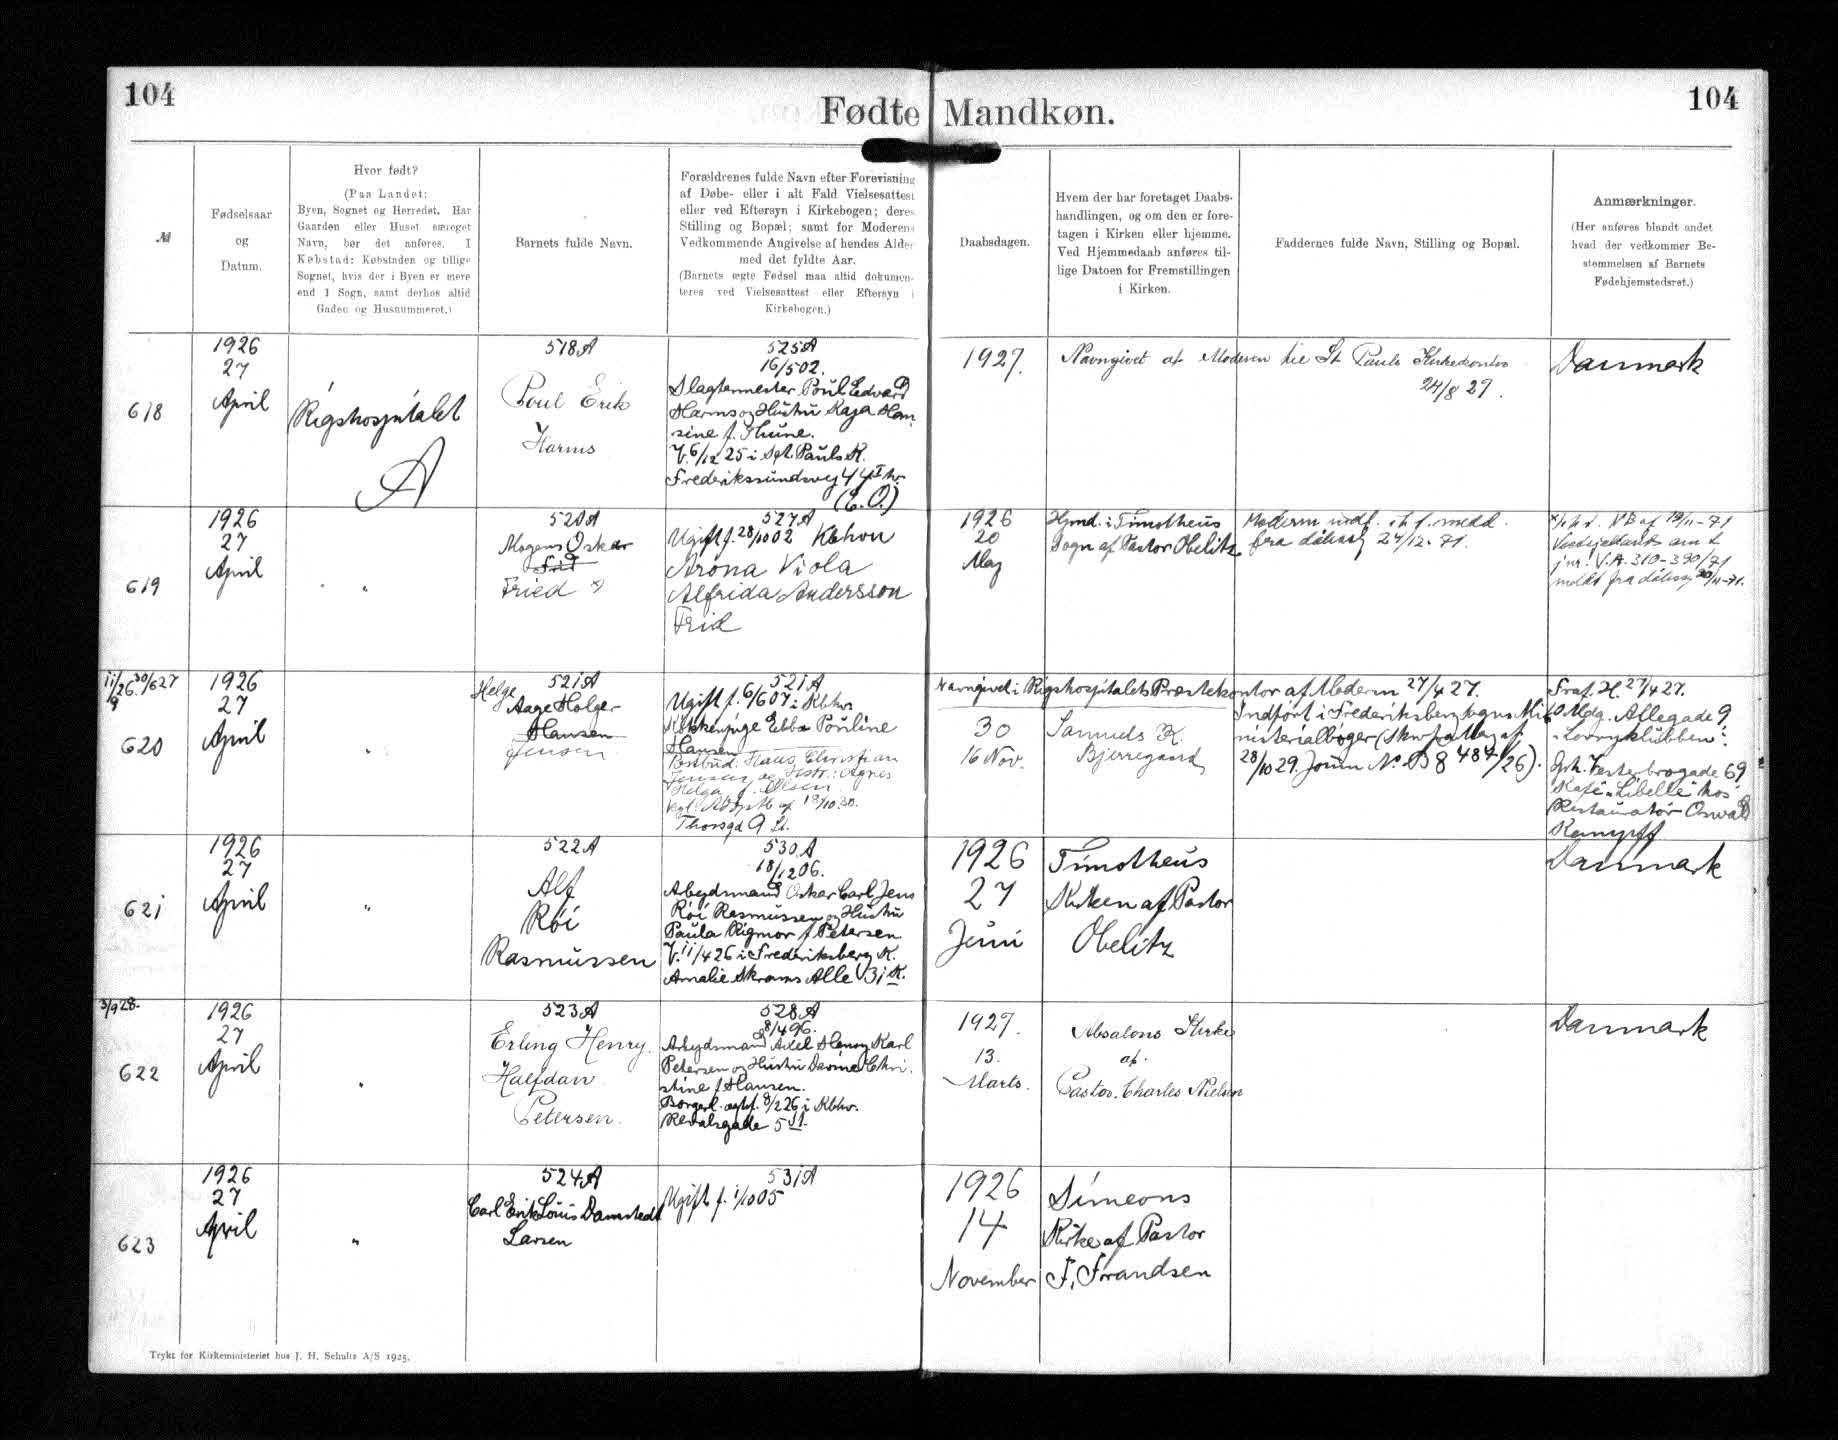 104
104
Fødte Mandkøn.
№
Fødselsaar
og
Datum.
Hvor født?
(Paa Landet:
Byen, Sognet og Herredet. Har
Gaarden eller Huset særeget
Navn, bør det anføres. I
Købstad: Købstaden og tillige
Sognet, hvis der i Byen er mere
end 1 Sogn, samt derhos altid
Gaden og Husnummeret.)
Barnets fulde Navn.
Forældrenes fulde Navn efter Forevisning
af Døbe- eller i alt Fald Vielsesattest
eller ved Eftersyn i Kirkebogen; deres
Stilling og Bopæl; samt for Moderens
Vedkommende Angivelse af hendes Alder
med det fyldte Aar.
(Barnets ægte Fødsel maa altid dokumen-
teres ved Vielsesattest eller Eftersyn i
Kirkebogen.)
Daabsdagen.
Hvem der har foretaget Daabs-
handlingen, og om den er fore-
tagen i Kirken eller hjemme.
Ved Hjemmedaab anføres til-
lige Datoen for Fremstillingen
i Kirken.
Faddernes fulde Navn, Stilling og Bopæl.
Anmærkninger.
(Her anføres blandt andet
hvad der vedkommer Be-
stemmelsen af Barnets
Fødehjemstedsret.)
618
1926
27
April
Rigshospitalet
A
518A
Poul Erik
Harms
525A
16/502.
Slagtermester Poul Edvard
Harms og Hustru Kaja Han-
sine f. Thune.
V. 6/12 25 i Sct. Pauls K.
Frederikssundsvej 44 I hv.
(E.O.)
1927.
Navngivet af Moderen til St Pauls Kirkekontor
24/8 27.
Danmark
619
1926
27
April
"
520A
Mogens Oskar
Frid
Fried x)
527A
Ugift f. 28/10 02 Kbhvn
Arona Viola
Alfrida Andersson
Frid
1926
20
Maj
Hjmd. i Timotheus
Sogn af Pastor Obelitz
Moderen indf. i h.t. medd.
fra dåbsreg 24/12-71.
x) i h.t. NB af 19/11-71
Vestsjællands amt
jnr: V.A. 310-390/71
meddt fra dåbsreg 30/11-71.
11/9 26. 30/6 27
620
1926
27
April
"
521A
Helge
Aage Holger
Hansen
Jensen
521A
Ugift f. 6/6 07 i Kbhvn
Køkkenpige Ebba Pouline
Hansen
Postbud: Hans Christian
Jensen og Hstr.: Agnes
Helga f. Olsen
kgl. Adopt. af 18/10 30.
Thorsgd 9 St.
Navngivet i Rigshospitalets Præstekontor af Moderen 27/4 27.
30
16 Nov.
Samuels K.
Bjerregaard
Indført i Frederiksberg Sogns Mi-
nisterialbøger (Skriv fra Mag af
28/10 29. Journ No B 8 484/26).
Fraf. H. 27/4 27.
O. Mdg. Allegade 9.
"Lorryklubben".
Oph. Vesterbrogade 69
Kafe "Libelle" hos
Restauratør Osvald
Kampff
621
1926
27
April
"
522A
Alf
Röi
Rasmussen
530A
18/12 06.
Arbejdsmand Oskar Carl Jens
Röi Rasmussen og Hustru
Paula Rigmor f Petersen
V. 11/4 26 i Frederiksberg K.
Amalie Skrams Alle 31 K.
1926
27
Juni
Timotheus
Kirken af Pastor
Obelitz
Danmark
3/9 28.
622
1926
27
April
"
523A
Erling Henry
Halfdan
Petersen.
528A
8/4 96.
Arbejdsmand Axel Henry Karl
Petersen og Hustru Davine Chri-
stine f Hansen.
Borgerl. ægtef. 8/2 26 i Kbhv.
Revalsgade 5 St.
1927.
13.
Marts.
Absalons Kirke
af.
Pastor. Charles Nielsen
Danmark
623
1926
27
April
"
524A
Carl Erik Louis Damstedt
Larsen
531A
Ugift f. 1/10 05
1926
14
November
Simeons
Kirke af Pastor
F. Frandsen
Trykt for Kirkeministeriet hos J. H. Schultz A/S 1925.